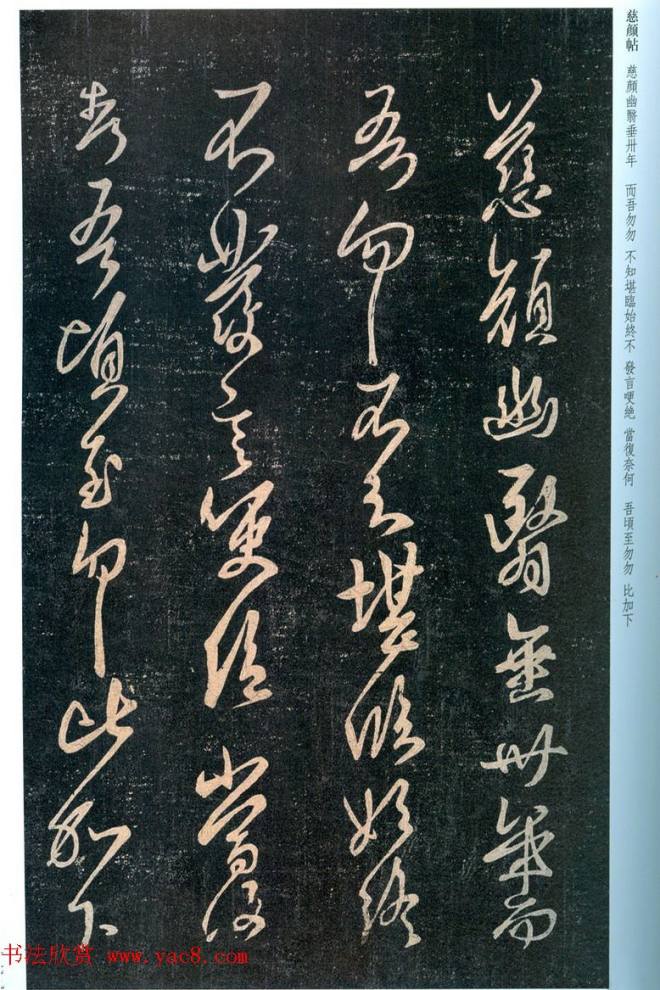 慈顔帖 慈顔幽翳垂卅年 而吾勿勿 不知堪臨始終不 發言哽絶 當復奈何 吾頃至勿勿 比加下
慈顔幽翳垂卅年而
吾勿勿不知堪臨始終
不發言哽絶當復
奈何吾頃至勿勿比加下
书法欣赏 www.yac8.com